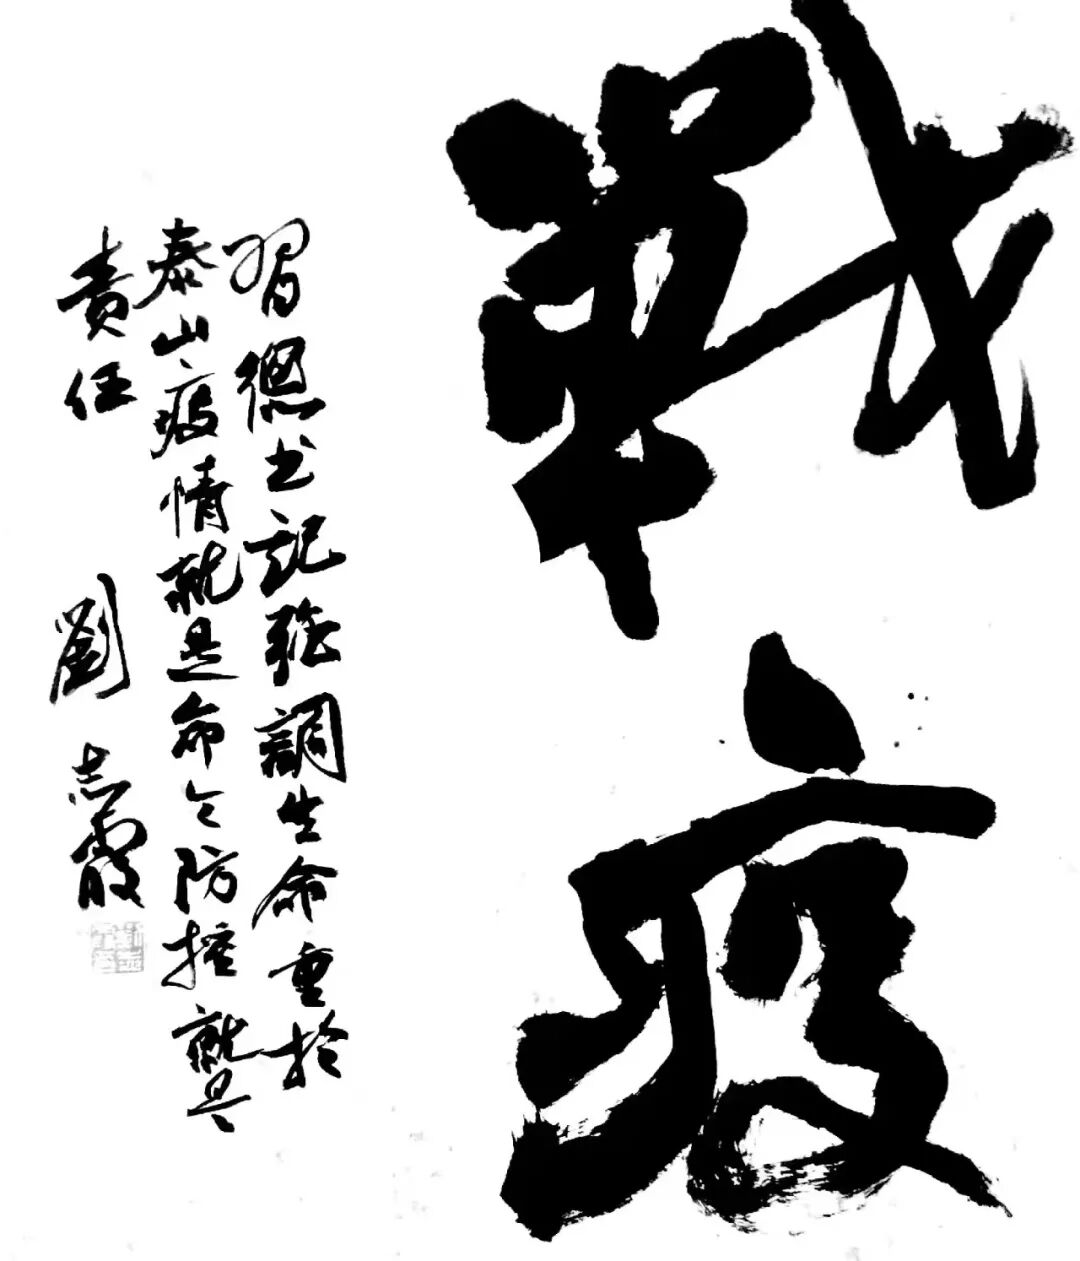 戰疫
習總书記強調生命重於
泰山疫情就是命令防控就是
責任
劉志霞